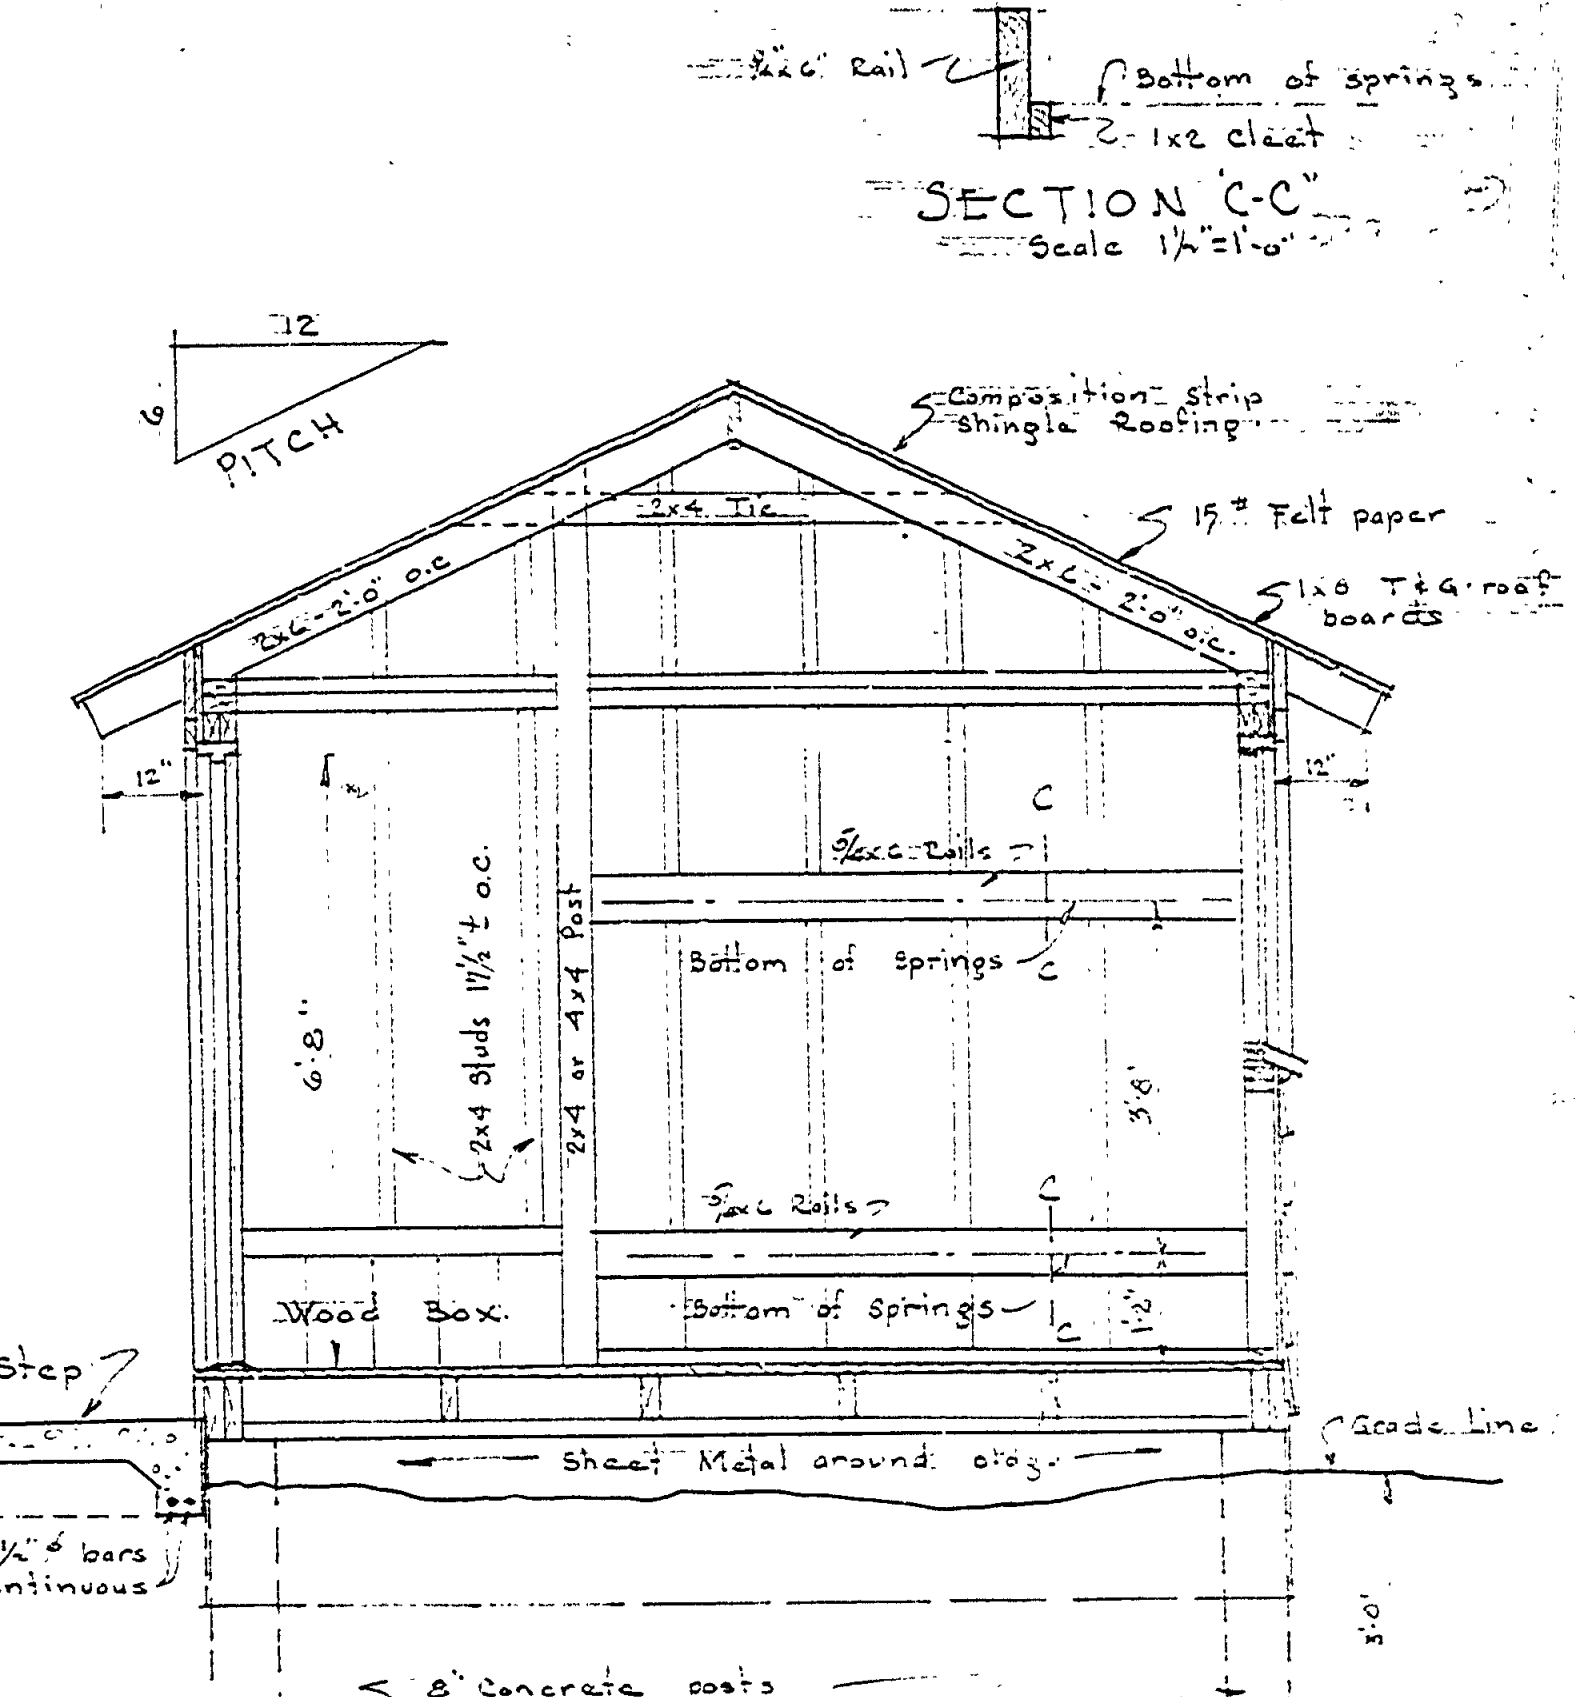 5/4x6" Rail
Bottom of springs
1x2 cleat
SECTION "C-C"
Scale 1 1/2"=1'-0"
12
6
PITCH
Composition Strip
Shingle Roofing
15# Felt paper
1x8 T & G roof
boards
2x4 Tie
2x6 - 2'-0" o.c
2x6 - 2'-0" o.c.
12"
12"
C
5/4x6 Rails
Bottom of Springs
C
6'-8"
2x4 Studs 17 1/2" ± o.c.
2x4 or 4x4 Post
3'-8"
5/4x6 Rails
C
Bottom of Springs
C
1'-2"
Wood Box.
Step
Grade Line
Sheet Metal around bldg.
1/2" ϕ bars
ontinuous
3'-0"
8" Concrete posts